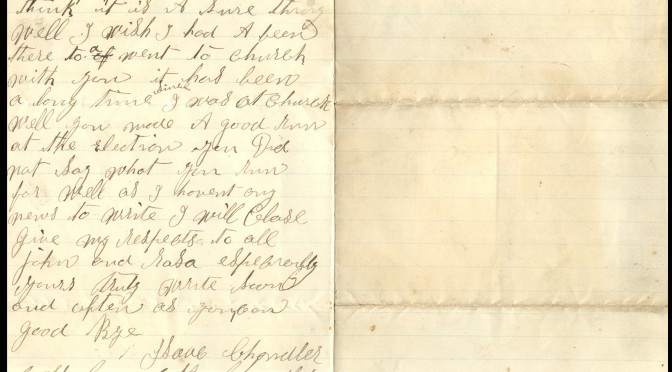 think it is A sure thing
well I wish I had A been
there to a went to church
with you it has been
a long time since I was at church
well you made A good run
at the Election you Did
not Say what you run
for well as I havent any
news to write I will Close
Give my respects to all
john and rasa especially
yours truly write soon
and often as you can
good Bye
Isaac Chandler